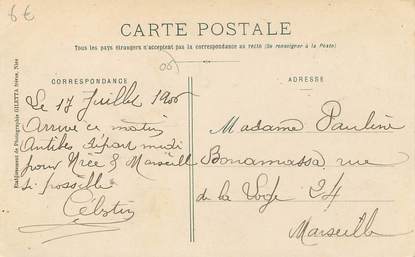 6€
CARTE POSTALE
Tous les pays étrangers n'acceptent pas la correspondance au recto (Se renseigner à la Poste)
(06)
Etablissement de Photographie GILETTA frères, Nice
CORRESPONDANCE
Le 17 Juillet 1906
Arrivé ce matin
Antibes départ midi
pour Nice & Marseille
si possible
Célestin
ADRESSE
Madame Pauline
Bonamassa rue
de la Loge 24
Marseille